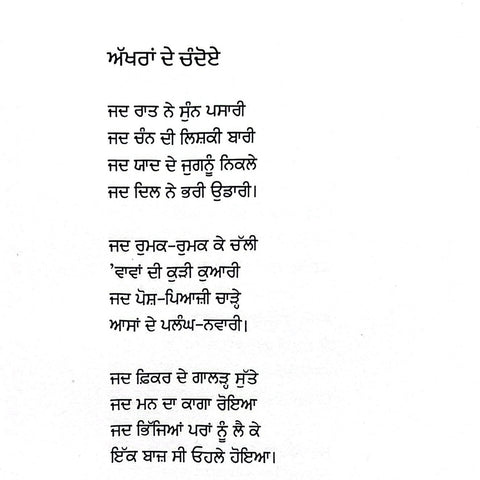 ਅੱਖਰਾਂ ਦੇ ਚੰਦੋਏ
ਜਦ ਰਾਤ ਨੇ ਸੁੰਨ ਪਸਾਰੀ
ਜਦ ਚੰਨ ਦੀ ਲਿਸ਼ਕੀ ਬਾਰੀ
ਜਦ ਯਾਦ ਦੇ ਜੁਗਨੂੰ ਨਿਕਲੇ
ਜਦ ਦਿਲ ਨੇ ਭਰੀ ਉਡਾਰੀ।
ਜਦ ਰੁਮਕ-ਰੁਮਕ ਕੇ ਚੱਲੀ
'ਵਾਵਾਂ ਦੀ ਕੁੜੀ ਕੁਆਰੀ
ਜਦ ਪੋਸ਼-ਪਿਆਜ਼ੀ ਚਾੜ੍ਹੇ
ਆਸਾਂ ਦੇ ਪਲੰਘ-ਨਵਾਰੀ।
ਜਦ ਫ਼ਿਕਰ ਦੇ ਗਾਲੜ੍ਹ ਸੁੱਤੇ
ਜਦ ਮਨ ਦਾ ਕਾਗਾ ਰੋਇਆ
ਜਦ ਭਿੱਜਿਆਂ ਪਰਾਂ ਨੂੰ ਲੈ ਕੇ
ਇੱਕ ਬਾਜ਼ ਸੀ ਓਹਲੇ ਹੋਇਆ।